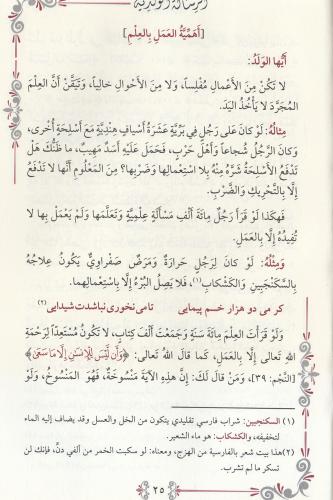 الرسالة الولدية
[أَهَمِّيَّةُ العَمَلِ بِالعِلْمِ]
أَيُّها الوَلَدُ:
لا تَكُنْ مِنَ الأَعْمالِ مُفْلِساً، وَلا مِنَ الأَحْوالِ خالِياً، وَتَيَقَّنْ أَنَّ العِلْمَ
المُجَرَّدَ لا يَأْخُذُ اليَدَ.
مِثالُهُ: لَوْ كانَ عَلَى رَجُلٍ فِي بَرِّيَّةٍ عَشَرَةُ أَسْيافٍ هِنْدِيَّةٍ مَعَ أَسْلِحَةٍ أُخْرَى،
وَكانَ الرَّجُلُ شُجاعاً وَأَهْلَ حَرْبٍ، فَحَمَلَ عَلَيْهِ أَسَدٌ مَهِيبٌ، ما ظَنُّكَ هَلْ
تَدْفَعُ الأَسْلِحَةُ شَرَّهُ مِنْهُ بِلا اسْتِعْمالِها وَضَرْبِها؟ مِنَ المَعْلُومِ أَنَّها لا تَدْفَعُ
إِلَّا بِالتَّحْرِيكِ وَالضَّرْبِ.
فَهكَذا لَوْ قَرَأَ رَجُلٌ مِائَةَ أَلْفِ مَسْأَلَةٍ عِلْمِيَّةٍ وَتَعَلَّمَها وَلَمْ يَعْمَلْ بِها لا
تُفِيدُهُ إِلَّا بِالعَمَلِ.
وَمِثْلُهُ: لَوْ كانَ لِرَجُلٍ حَرارَةٌ وَمَرَضٌ صَفْراوِيٌّ يَكُونُ عِلاجُهُ
بِالسَّكَنْجَبِينِ وَالكَشْكابِ(١)، فَلا يَصِلُ البُرْءُ إِلَّا بِاسْتِعْمالِهِما.
كر مي دو هزار خم پيمايى تامى نخورى نباشدت شيدايى(٢)
وَلَوْ قَرَأْتَ العِلْمَ مِائَةَ سَنَةٍ وَجَمَعْتَ أَلْفَ كِتابٍ، لا تَكُونُ مُسْتَعِدّاً لِرَحْمَةِ
اللهِ تَعالَى إِلَّا بِالعَمَلِ، كَما قالَ اللهُ تَعالَى: ﴿وَأَن لَّيْسَ لِلْإِنسَٰنِ إِلَّا مَا سَعَىٰ﴾
[النَّجْم: ٣٩]، وَمَنْ قالَ لَكَ: إِنَّ هذِهِ الآيَةَ مَنْسُوخَةٌ، فَهُوَ المَنْسُوخُ، وَلَوْ
(١) السكنجبين: شراب فارسي تقليدي يتكون من الخل والعسل وقد يضاف إليه الماء
لتخفيفه، والكشكاب: هو ماء الشعير.
(٢) هذا بيت شعر بالفارسية من الهزج، ومعناه: لو سكبت الخمر من ألفي دنٍّ، فإنك لن
تسكر ما لم تشرب.
٢٥